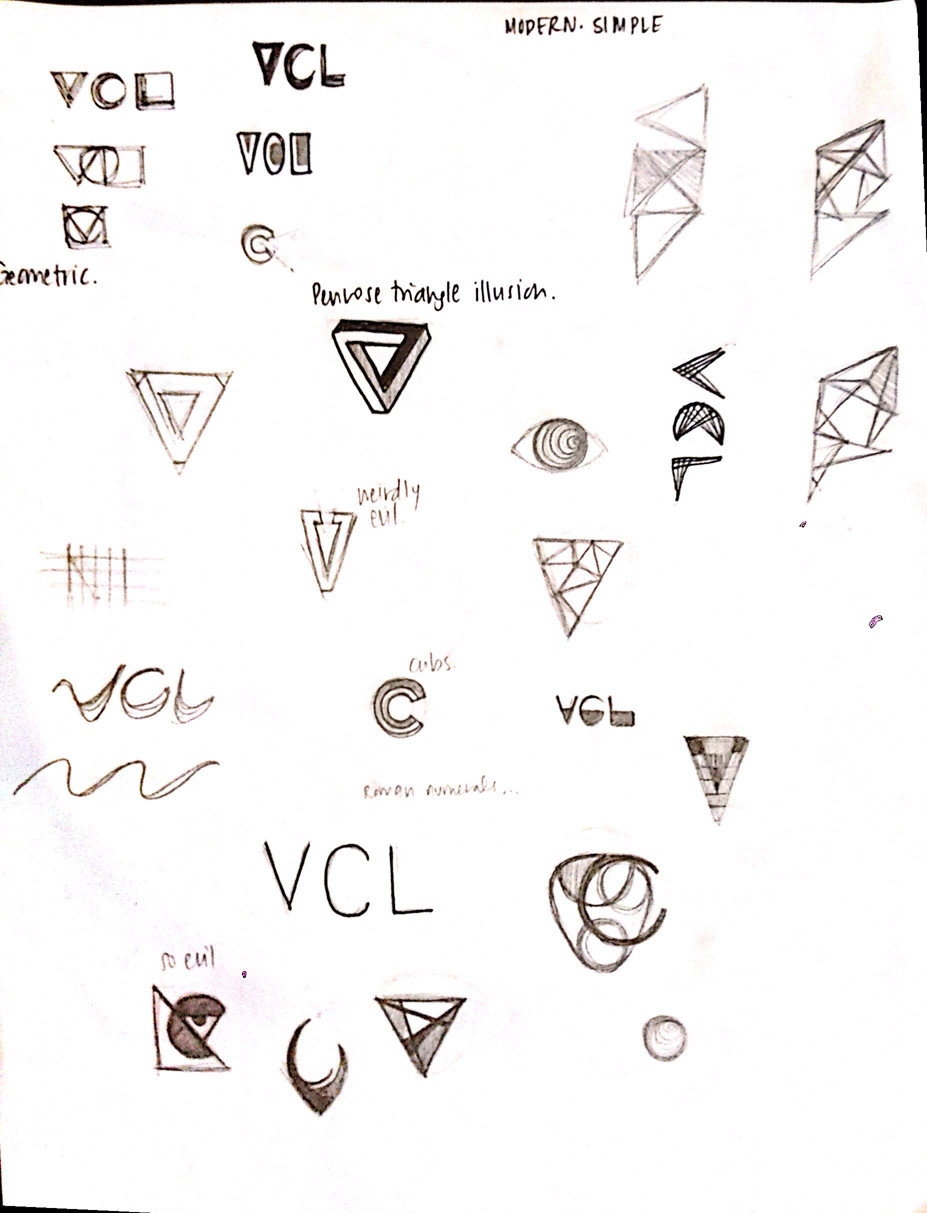 MODERN. SIMPLE
VCL
VCL
VCL
VCL
C
Geometric.
Penrose triangle illusion.
weirdly
evil.
V
VCL
cubs.
C
VCL
Roman numerals...
VCL
so evil